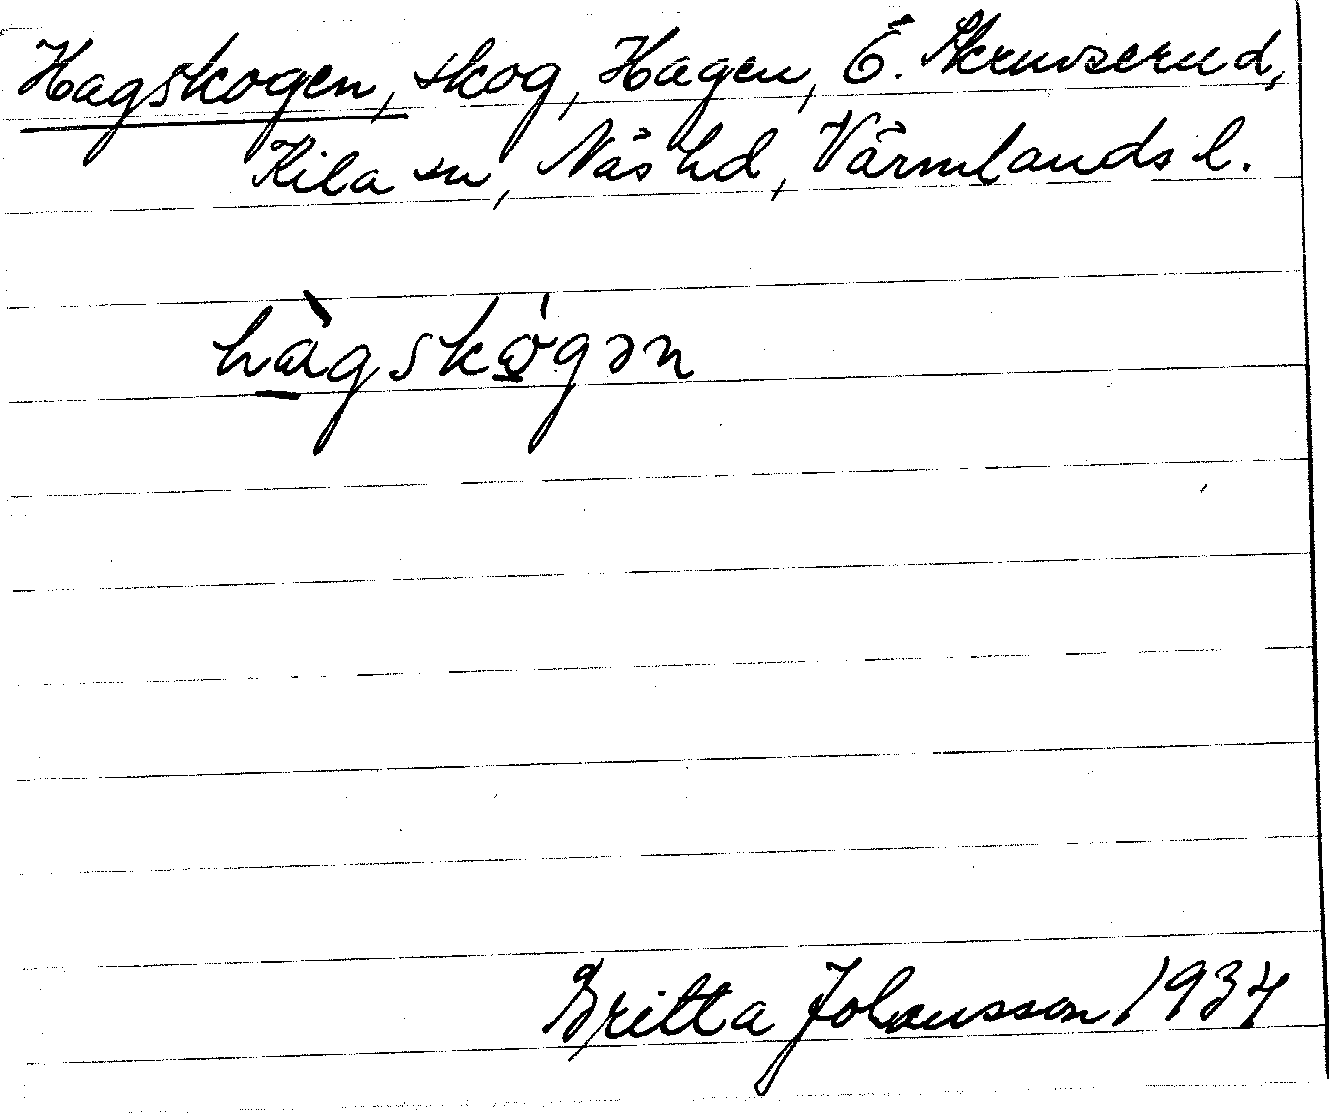 Hagskogen, skog, Hagen, Ö. Skruvserud,
Kila sn, Näs hd, Värmlands l.
hàgskógən
Britta Johansson 1934